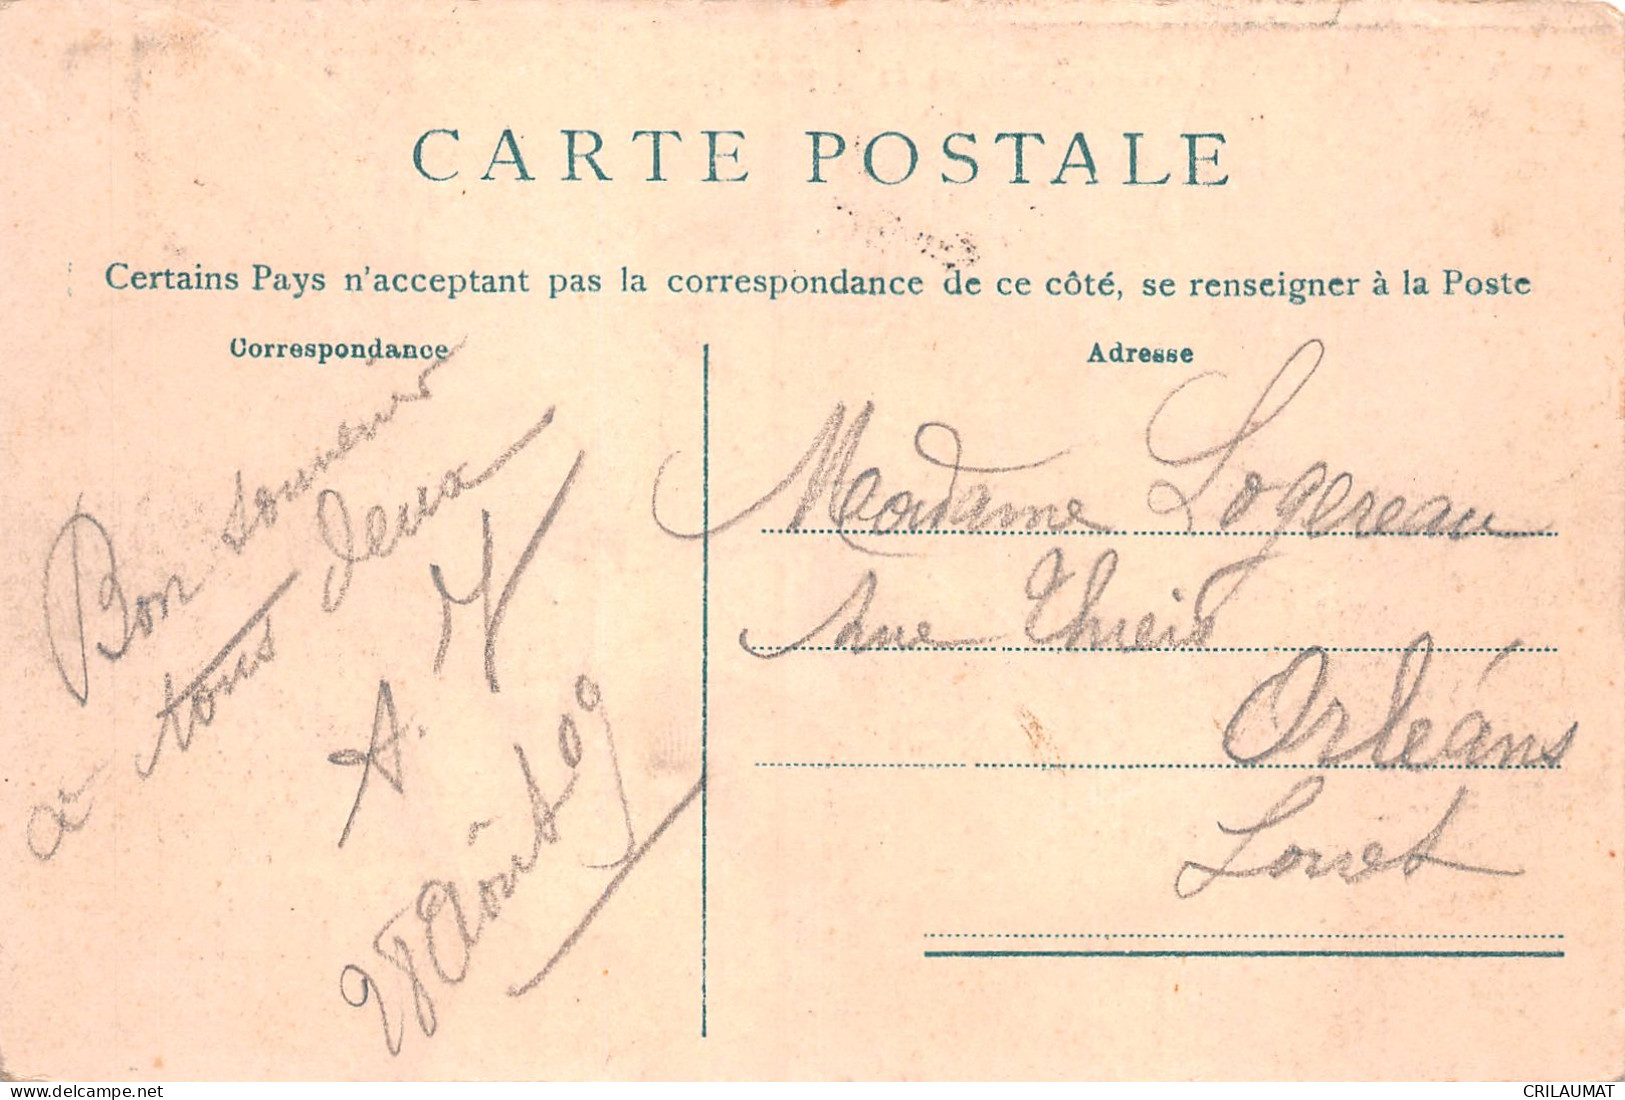 CARTE POSTALE
Certains Pays n'acceptant pas la correspondance de ce côté, se renseigner à la Poste
Correspondance
Adresse
Bon souvenir
à tous deux
A. M
28 Août 09
Madame Logereau
rue
Orléans
Loiret
www.delcampe.net
CRILAUMAT